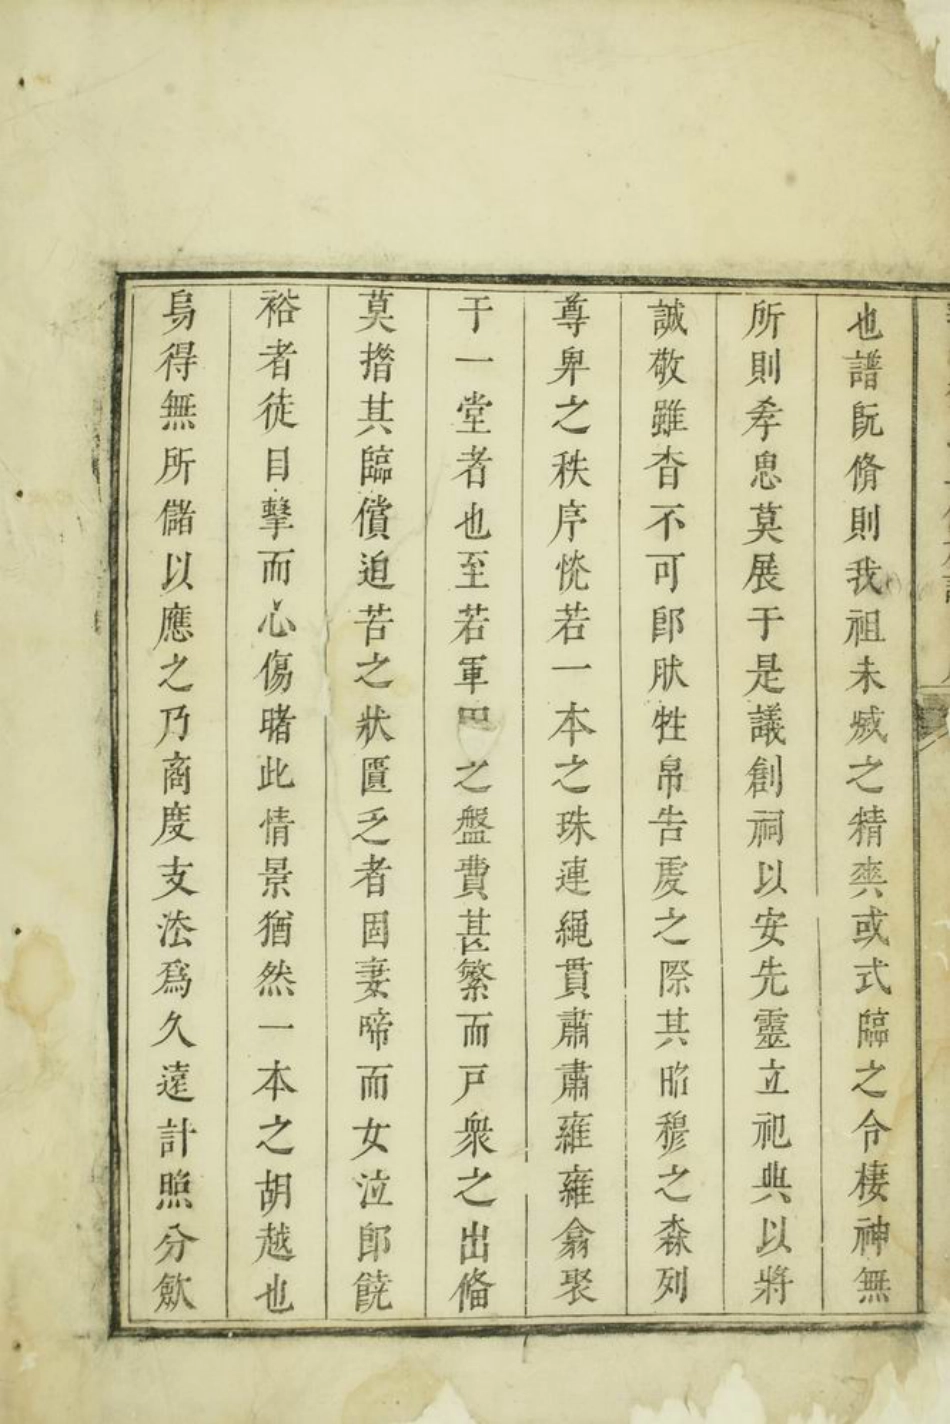 也譜旣脩則我祖未娍之精爽或式臨之令棲神無
所則孝思莫展于是議創祠以安先靈立祀典以將
誠敬雖杳不可卽肰牲帛告虔之際其昭穆之森列
尊卑之秩序恍若一本之珠連繩貫肅肅雍雍翕聚
于一堂者也至若軍之盤費甚繁而戸衆之出偹
莫措其臨償追苦之狀匱乏者固妻啼而女泣卽饒
裕者徒目擊而心傷睹此情景猶然一本之胡越也
烏得無所儲以應之乃商度支法爲久遠計照分歛